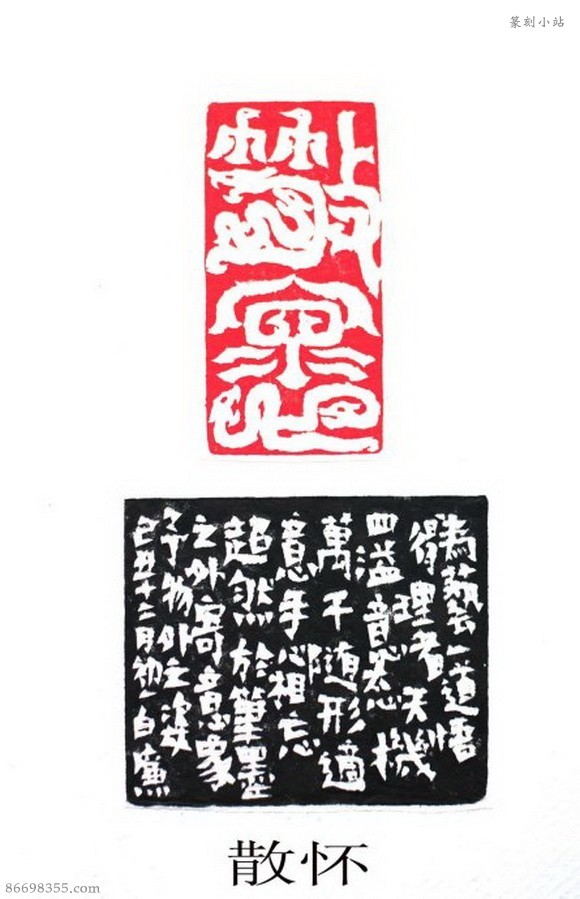 篆刻小站
散懷
為藝一道悟
得理者天機
四溢意態
萬千隨形適
意手心相忘
超然於筆墨
之外寄意象
于物外之姿
己丑十二月初一白廉
散怀
86698355.com